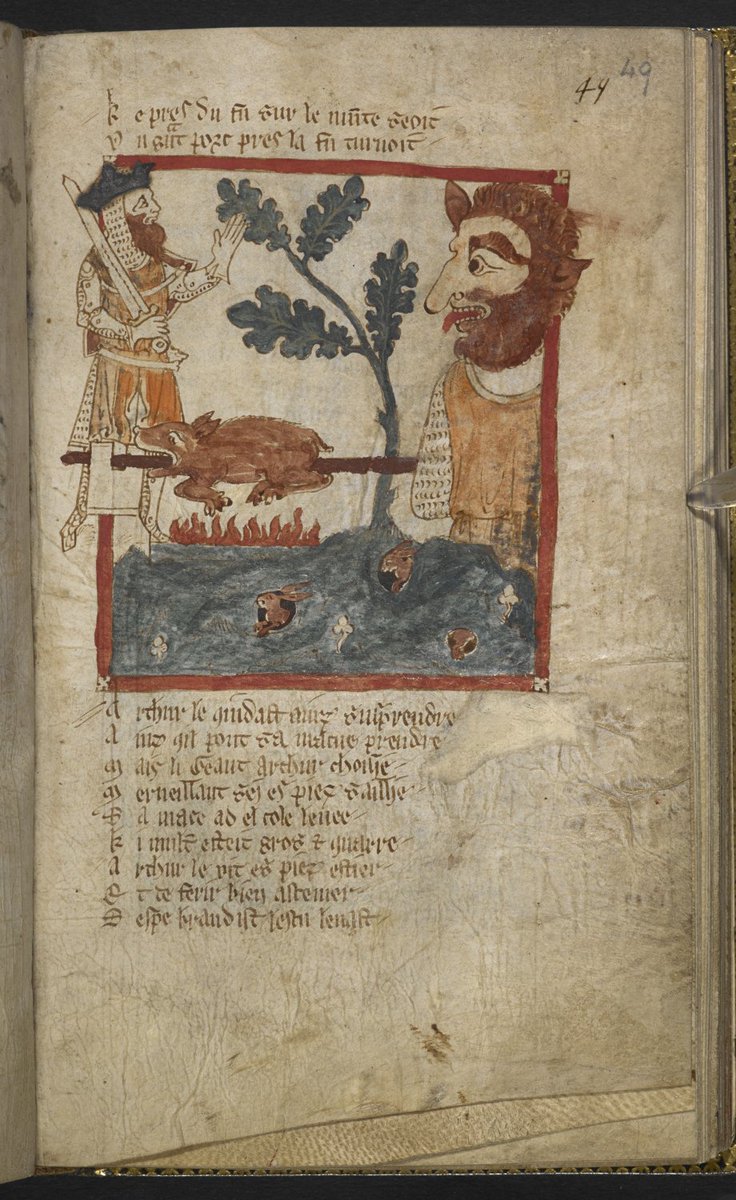 44 49
k e pres du fu sur le munte seoit
V n gnt porc pres la fu turnoit
A rthur le quidast auir suprendre
A inz qil pout sa mace prendre
M ais li Geant Arthur choisie
M erueillant sei es piez saillie
S a mace ad el cole leuee
k i mult esteit gros & quarre
A rthur le vit es piez ester
E t de ferir bien astemer
S espe brandist lescu